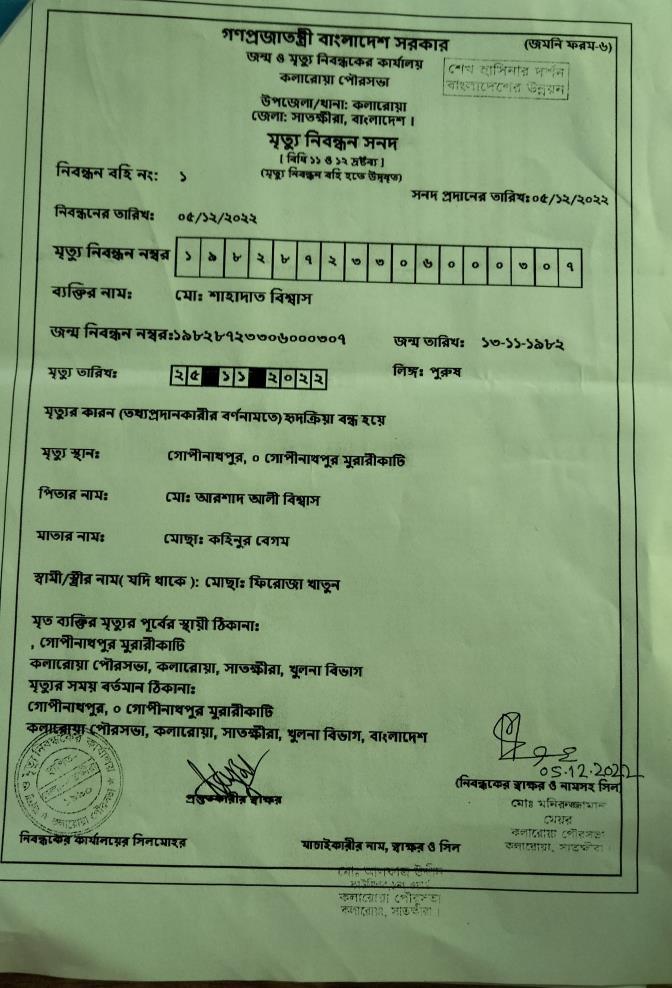 গণপ্রজাতন্ত্রী বাংলাদেশ সরকার
(জমনি ফরম-৬)
জন্ম ও মৃত্যু নিবন্ধকের কার্যালয়
কলারোয়া পৌরসভা
শেখ হাসিনার দর্শন
বাংলাদেশের উন্নয়ন
উপজেলা/থানা: কলারোয়া
জেলা: সাতক্ষীরা, বাংলাদেশ ।
মৃত্যু নিবন্ধন সনদ
[ বিধি ১১ ও ১২ দ্রষ্টব্য ]
(মৃত্যু নিবন্ধন বহি হতে উদ্ধৃত)
নিবন্ধন বহি নং: ১
সনদ প্রদানের তারিখ: ০৫/১২/২০২২
নিবন্ধনের তারিখ: ০৫/১২/২০২২
মৃত্যু নিবন্ধন নম্বর ১ ৯ ৮ ২ ৮ ৭ ২ ৩ ৩ ০ ৬ ০ ০ ০ ৩ ০ ৭
ব্যক্তির নাম: মো: শাহাদাত বিশ্বাস
জন্ম নিবন্ধন নম্বর:১৯৮২৮৭২৩৩০৬০০০৩০৭ জন্ম তারিখ: ১৩-১১-১৯৮২
মৃত্যু তারিখ: ২ ৫ ১ ১ ২ ০ ২ ২ লিঙ্গ: পুরুষ
মৃত্যুর কারন (তথ্যপ্রদানকারীর বর্ণনামতে) হৃদক্রিয়া বন্ধ হয়ে
মৃত্যু স্থান: গোপীনাথপুর, ০ গোপীনাথপুর মুরারীকাটি
পিতার নাম: মো: আরশাদ আলী বিশ্বাস
মাতার নাম: মোছা: কহিনুর বেগম
স্বামী/স্ত্রীর নাম( যদি থাকে ): মোছা: ফিরোজা খাতুন
মৃত ব্যক্তির মৃত্যুর পূর্বের স্থায়ী ঠিকানা:
, গোপীনাথপুর মুরারীকাটি
কলারোয়া পৌরসভা, কলারোয়া, সাতক্ষীরা, খুলনা বিভাগ
মৃত্যুর সময় বর্তমান ঠিকানা:
গোপীনাথপুর, ০ গোপীনাথপুর মুরারীকাটি
কলারোয়া পৌরসভা, কলারোয়া, সাতক্ষীরা, খুলনা বিভাগ, বাংলাদেশ
05.12.2022
(নিবন্ধকের স্বাক্ষর ও নামসহ সিল)
প্রস্তুতকারীর স্বাক্ষর
মোঃ মনিরুজ্জামান
মেয়র
কলারোয়া পৌরসভা
কলারোয়া, সাতক্ষীরা ।
নিবন্ধকের কার্যালয়ের সিলমোহর
যাচাইকারীর নাম, স্বাক্ষর ও সিল
কলারোয়া পৌরসভা
কলারোয়া, সাতক্ষীরা ।